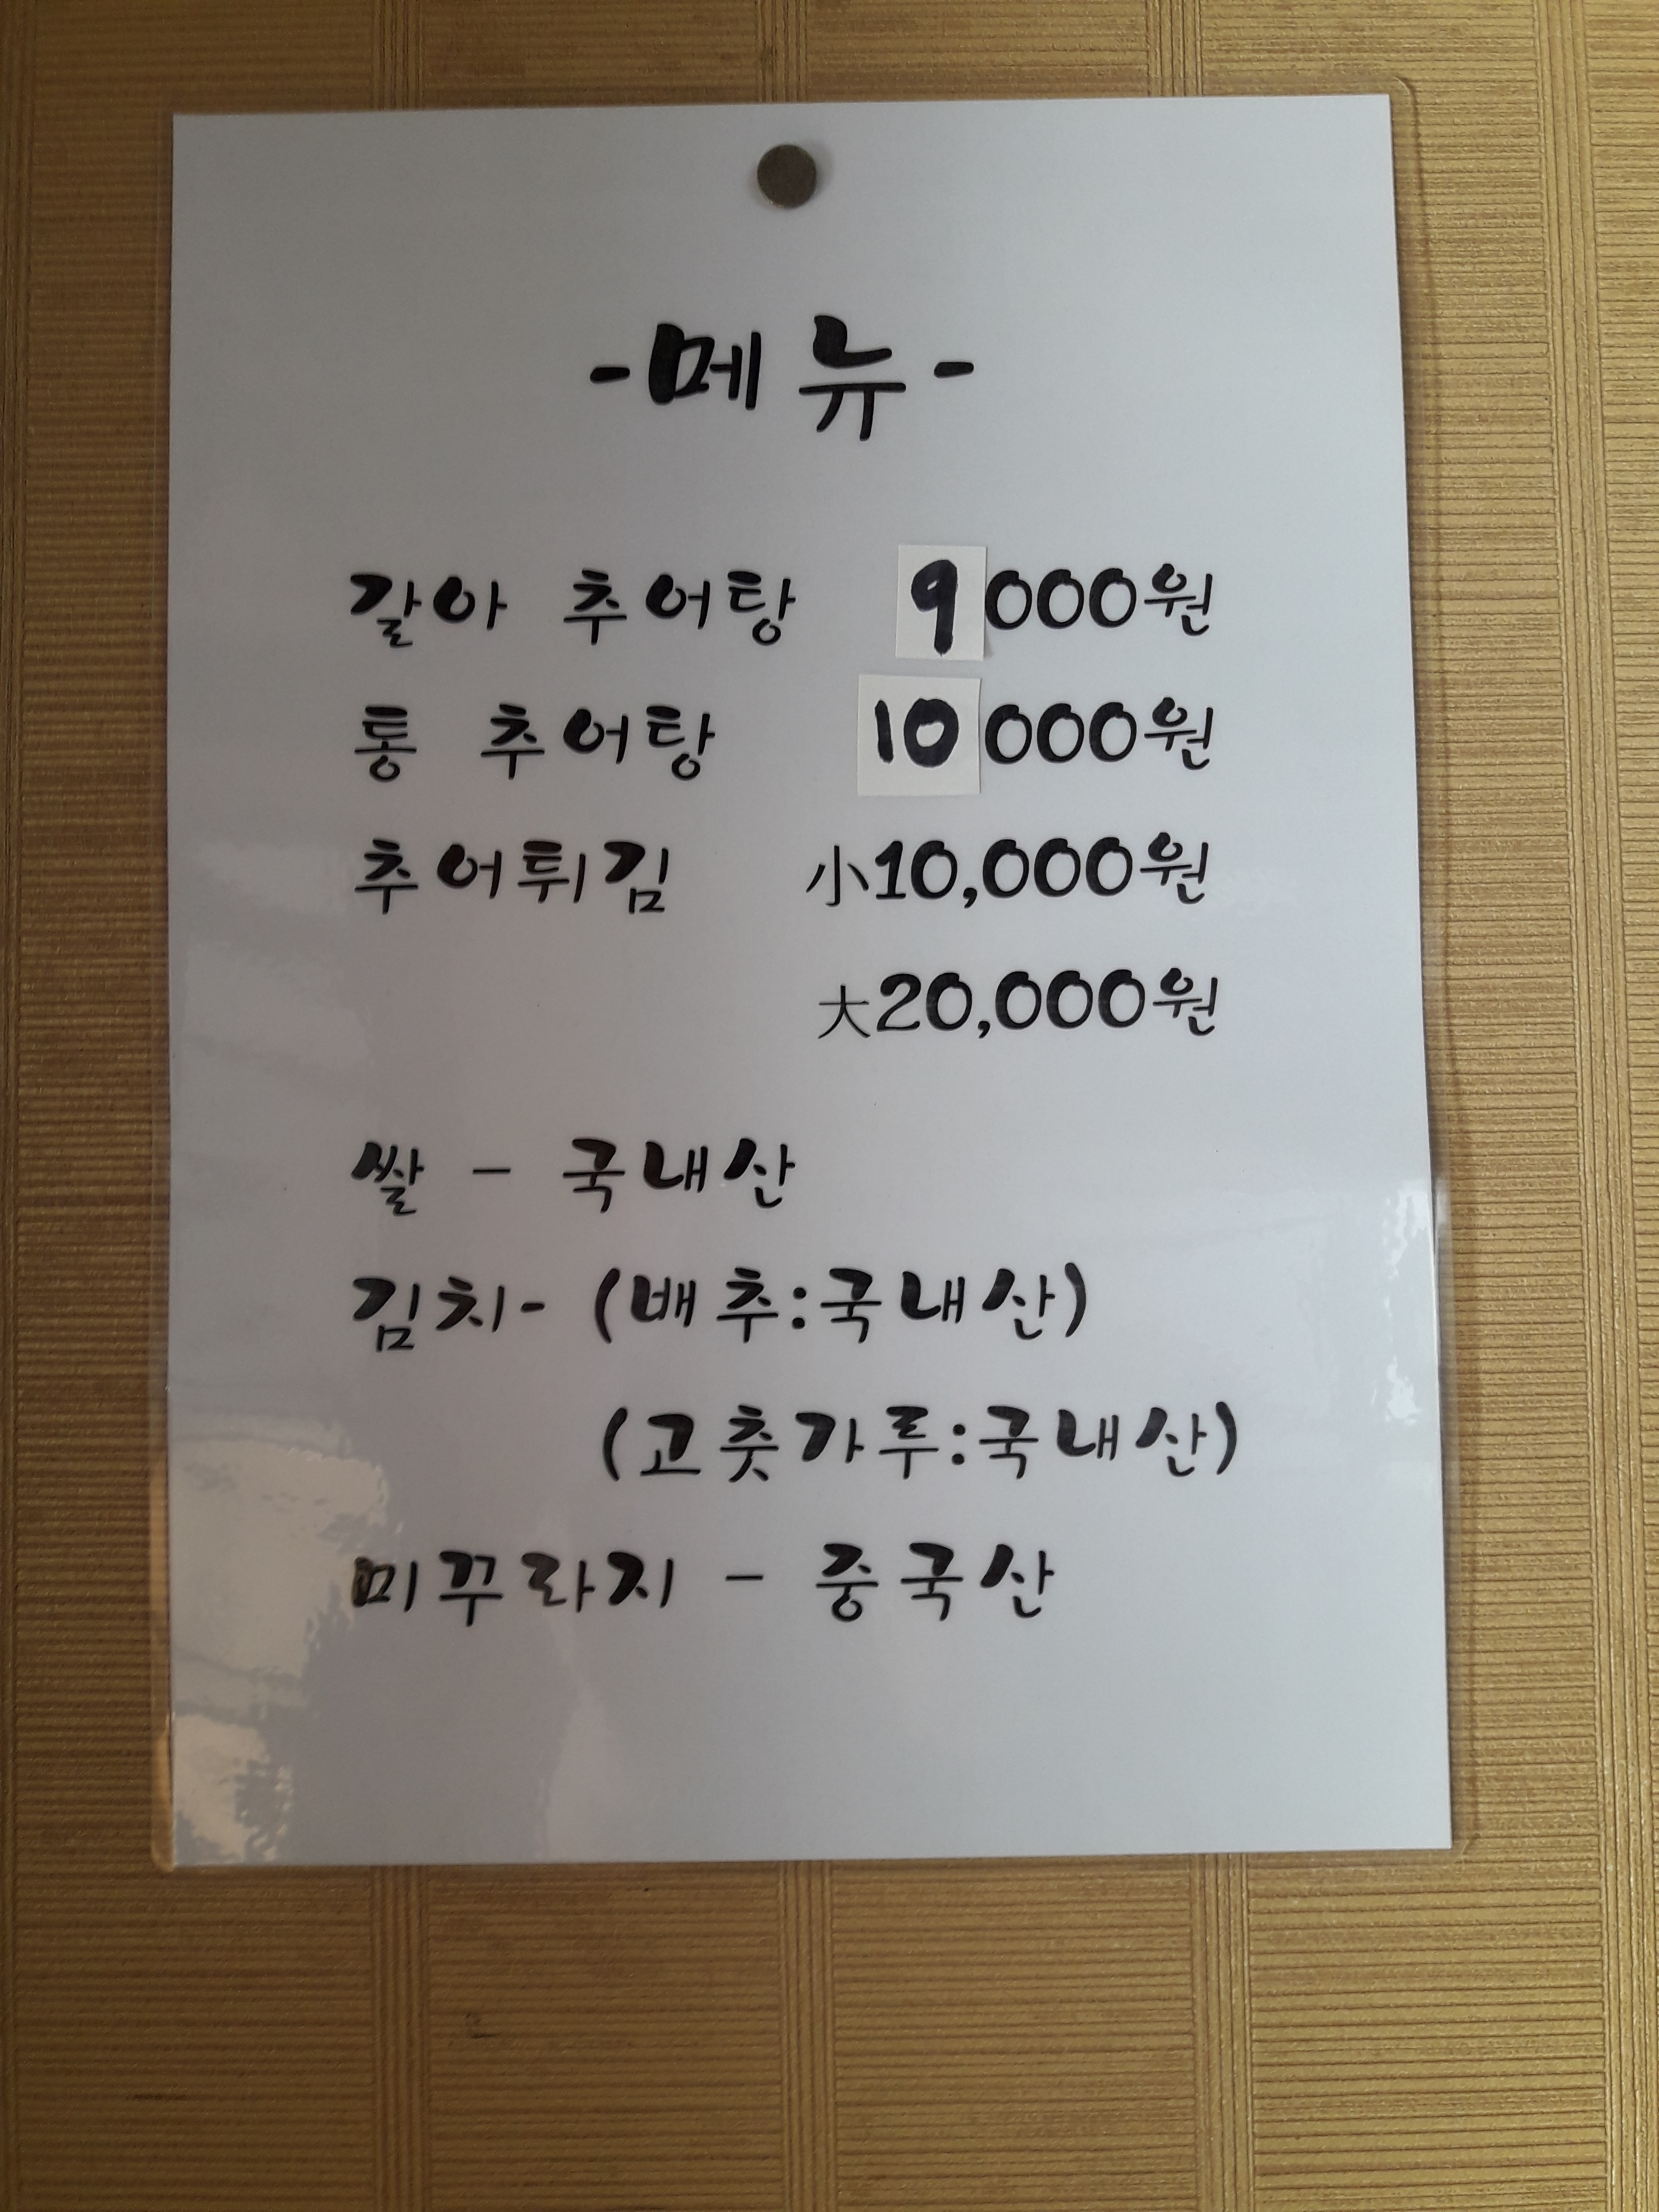 -메뉴-
갈아 추어탕 9000원
통 추어탕 10000원
추어튀김 小10,000원
大20,000원
쌀 - 국내산
김치- (배추:국내산)
(고춧가루:국내산)
미꾸라지 - 중국산